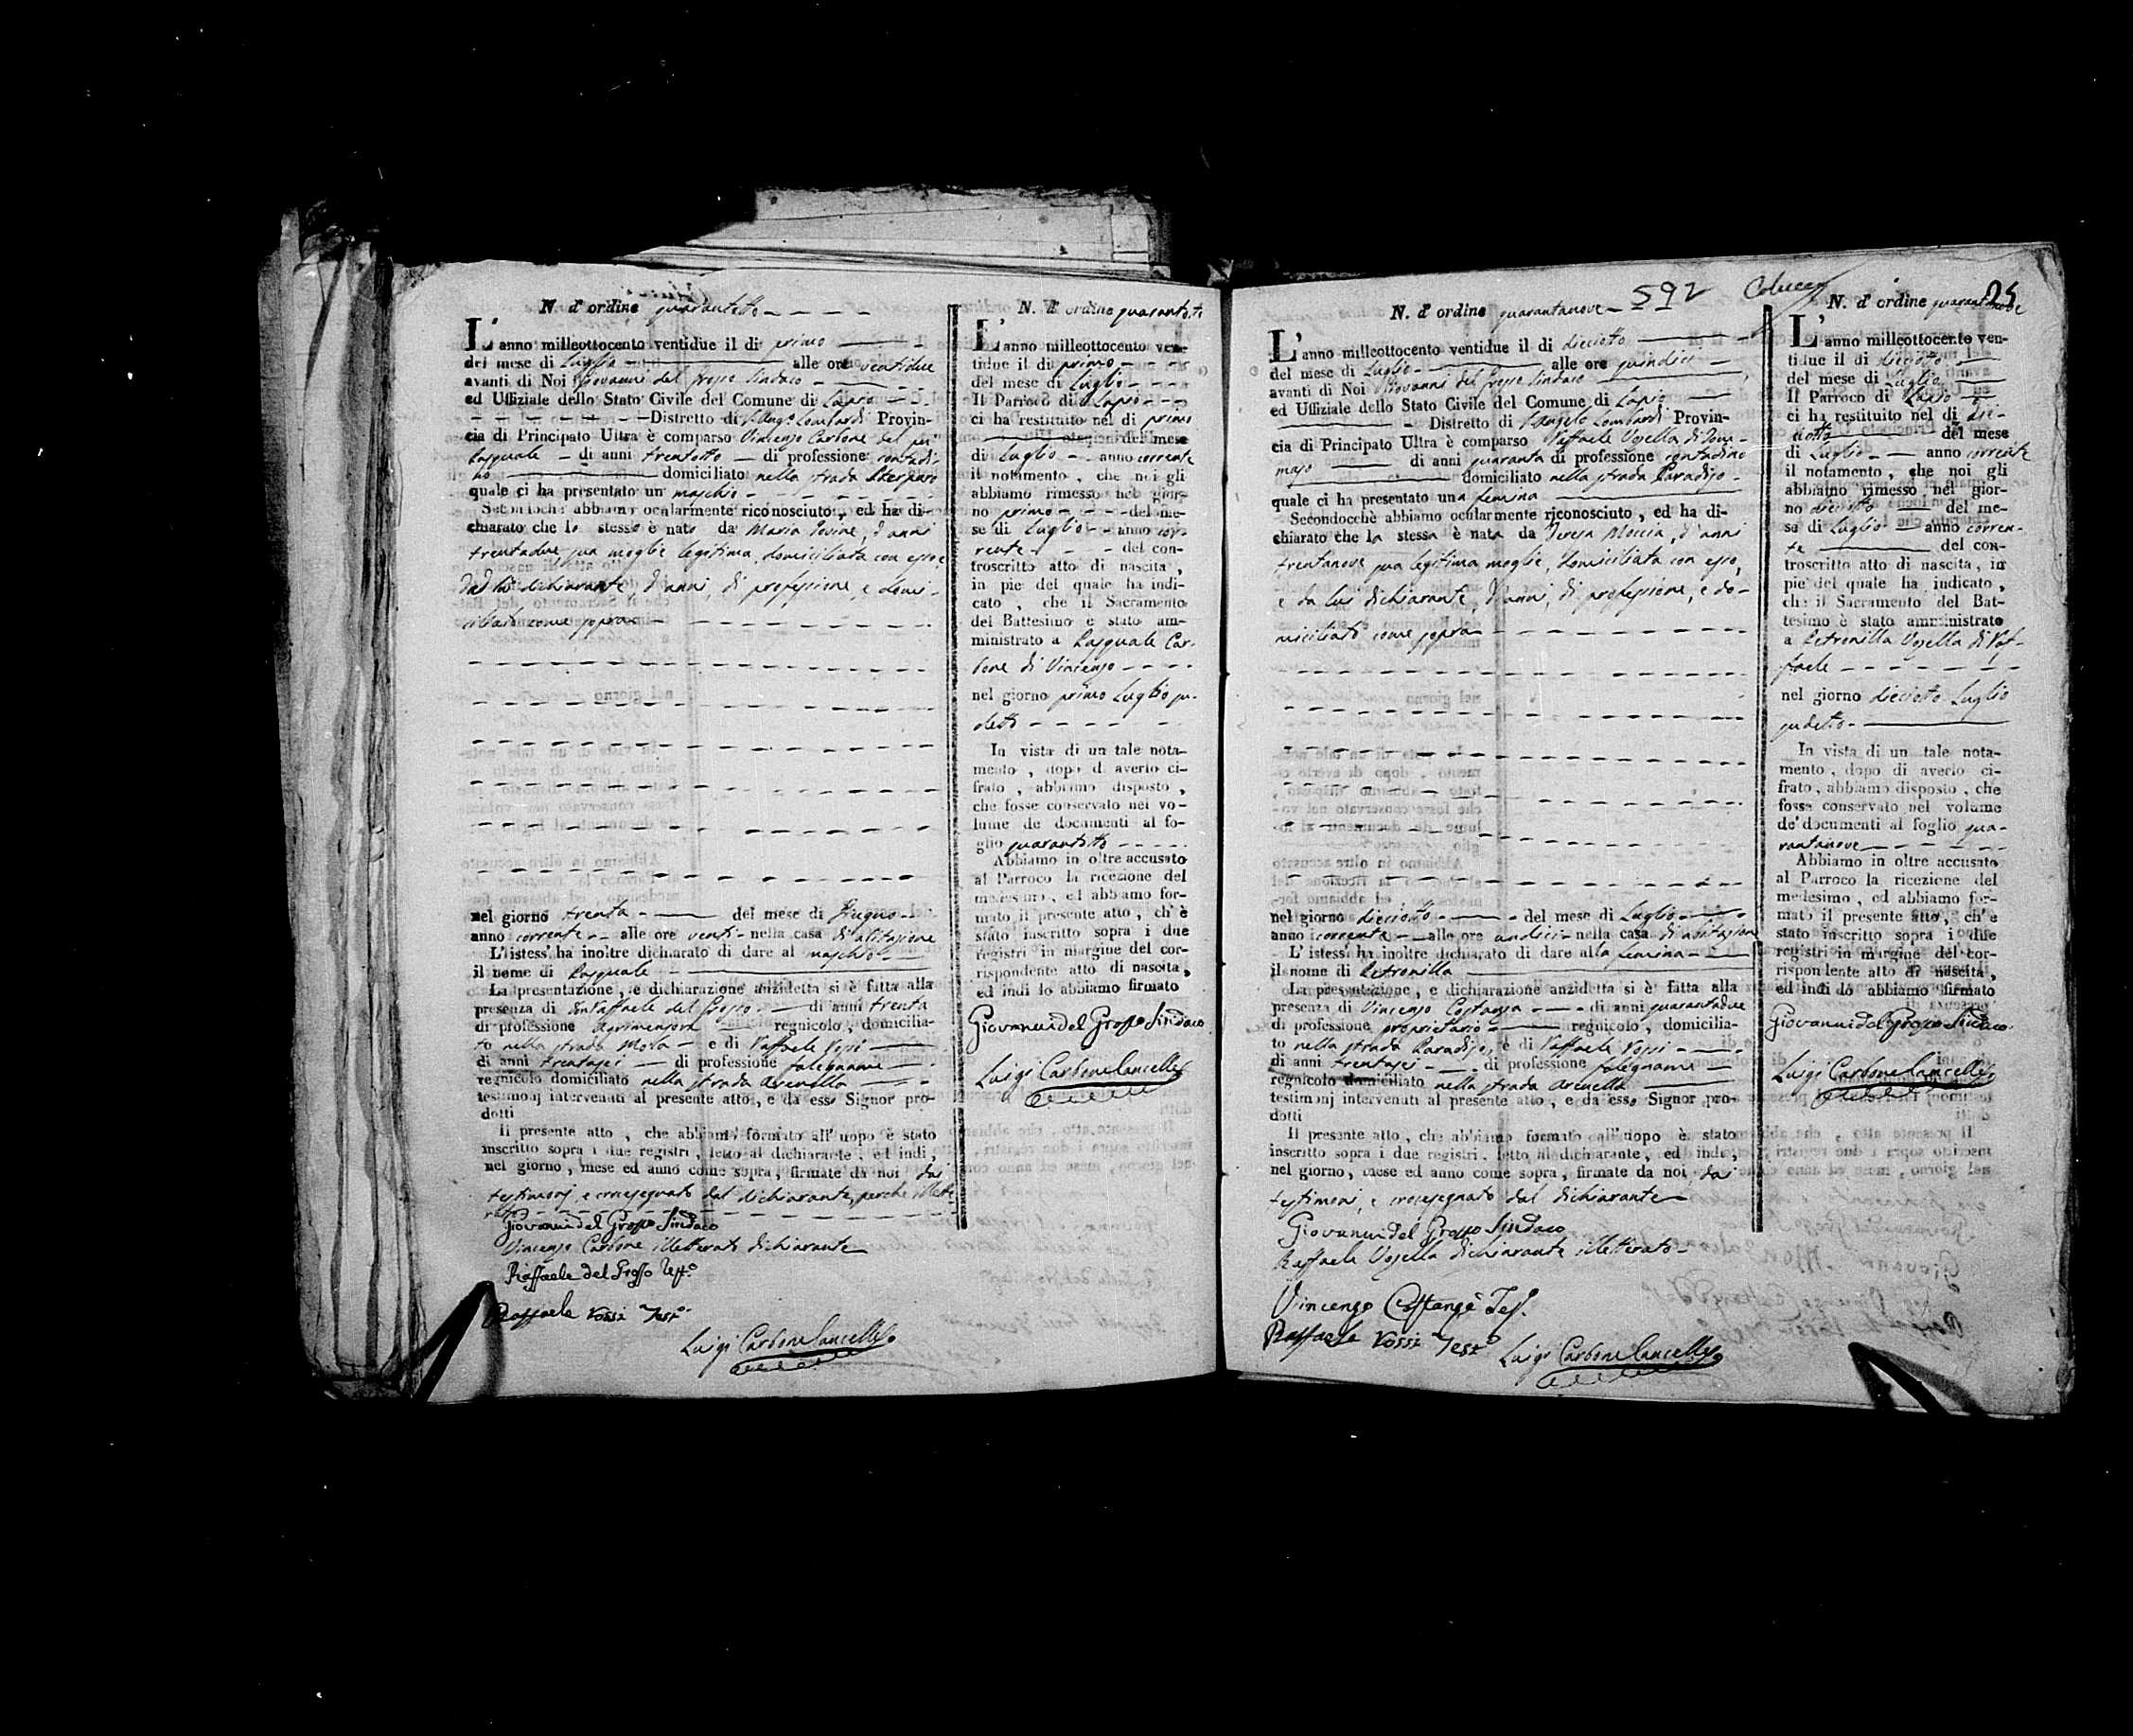 N. d'ordine quarantotto
L'anno milleottocento ventidue il di primo
del mese di Luglio alle ore ventidue
avanti di Noi Giovanni del Grosso Sindaco
ed Uffiziale dello Stato Civile del Comune di Lapio
Distretto di S. Ang.o Lombardi Provin-
cia di Principato Ultra è comparso Vincenzo Carbone del
Pasquale di anni trentotto di professione contadi-
no domiciliato nella strada
quale ci ha presentato un maschio
Secondochè abbiamo ocularmente riconosciuto, ed ha di-
chiarato che lo stesso è nato da Maria , d'anni
trentadue sua moglie legitima domiciliata con esso e
da lui dichiarante, d'anni, di professione, e domi-
ciliato come sopra
nel giorno trenta del mese di Giugno
anno corrente alle ore venti nella casa d'abitazione
L'istess' ha inoltre dichiarato di dare al maschio
il nome di Pasquale
La presentazione, e dichiarazione anzidetta si è fatta alla
presenza di Don Raffaele del Grosso di anni trenta
di professione agrimensore regnicolo, domicilia-
to nella strada Mola e di Raffaele Rossi
di anni trentasei di professione falegname
regnicolo domiciliato nella strada Arenella
testimonj intervenuti al presente atto, e da esso Signor pro-
dotti
Il presente atto, che abbiamo formato all'uopo è stato
inscritto sopra i due registri, letto al dichiarante, ed indi,
nel giorno, mese ed anno come sopra, firmate da noi dai
testimonj, e crocesegnato dal dichiarante, perche illette-
rato
Giovanni del Grosso Sindaco
Vincenzo Carbone illetterato dichiarante
Raffaele del Grosso Test.o
Raffaele Rossi Test.o
Luigi Carbone Cancell.e
N. d'ordine quarantotto
L'anno milleottocento ven-
tidue il di primo
del mese di Luglio
Il Parroco di Lapio
ci ha restituito nel di primo
del mese
di Luglio anno corrente
il notamento, che noi gli
abbiamo rimesso nel gior-
no primo del me-
se di Luglio anno cor-
rente del con-
troscritto atto di nascita,
in piè del quale ha indi-
cato, che il Sacramento
del Battesimo è stato am-
ministrato a Pasquale Car-
bone di Vincenzo
nel giorno primo Luglio su-
detto
In vista di un tale nota-
mento, dopo d averlo ci-
frato, abbiamo disposto,
che fosse conservato nel vo-
lume de documenti al fo-
glio quarantotto
Abbiamo in oltre accusato
al Parroco la ricezione del
medesimo, ed abbiamo for-
mato il presente atto, ch'è
stato inscritto sopra i due
registri in margine del cor-
rispondente atto di nascita,
ed indi lo abbiamo firmato
Giovanni del Grosso Sindaco
Luigi Carbone Cancell.e
N. d'ordine quarantanove
592
25
L'anno milleottocento ventidue il di diciotto
del mese di Luglio alle ore quindici
avanti di Noi Giovanni del Grosso Sindaco
ed Uffiziale dello Stato Civile del Comune di Lapio
Distretto di S. Angelo Lombardi Provin-
cia di Principato Ultra è comparso Raffaele Vosella di Tom-
maso di anni quaranta di professione contadino
domiciliato nella strada Paradiso
quale ci ha presentato una femina
Secondocchè abbiamo ocularmente riconosciuto, ed ha di-
chiarato che la stessa è nata da Teresa Moccia, d'anni
trentanove sua legitima moglie, domiciliata con esso,
e da lui dichiarante, d'anni, di professione, e do-
miciliato come sopra
nel giorno diciotto del mese di Luglio
anno corrente alle ore undici nella casa di abitazione
L'istess' ha inoltre dichiarato di dare alla femina
il nome di Petronilla
La presentazione, e dichiarazione anzidetta si è fatta alla
presenza di Vincenzo Costanza di anni quarantadue
di professione proprietario regnicolo, domicilia-
to nella strada Paradiso, e di Raffaele Rossi
di anni trentasei di professione falegname
regnicolo domiciliato nella strada Arenella
testimonj intervenuti al presente atto, e da esso Signor pro-
dotti
Il presente atto, che abbiamo formato all'uopo è stato
inscritto sopra i due registri, letto al dichiarante, ed indi,
nel giorno, mese ed anno come sopra, firmate da noi dai
testimoni, e crocesegnato dal dichiarante
Giovanni del Grosso Sindaco
Raffaele Vosella dichiarante illetterato
Vincenzo Costanza Tes.o
Raffaele Rossi Test.o
Luigi Carbone Cancell.e
N. d'ordine quarantanove
L'anno milleottocento ven-
tidue il di diciotto
del mese di Luglio
Il Parroco di Lapio
ci ha restituito nel di dic-
iotto del mese
di Luglio anno corrente
il notamento, che noi gli
abbiamo rimesso nel gior-
no diciotto del me-
se di Luglio anno corren-
te del con-
troscritto atto di nascita, in
piè del quale ha indicato,
che il Sacramento del Bat-
tesimo è stato amministrato
a Petronilla Vosella di Raf-
faele
nel giorno diciotto Luglio
sudetto
In vista di un tale nota-
mento, dopo di averlo ci-
frato, abbiamo disposto, che
fosse conservato nel volume
de' documenti al foglio qua-
rantanove
Abbiamo in oltre accusato
al Parroco la ricezione del
medesimo, ed abbiamo for-
mato il presente atto, ch'e
stato inscritto sopra i due
registri in margine del cor-
rispondente atto di nascita,
ed indi lo abbiamo firmato
Giovanni del Grosso Sindaco
Luigi Carbone Cancell.e